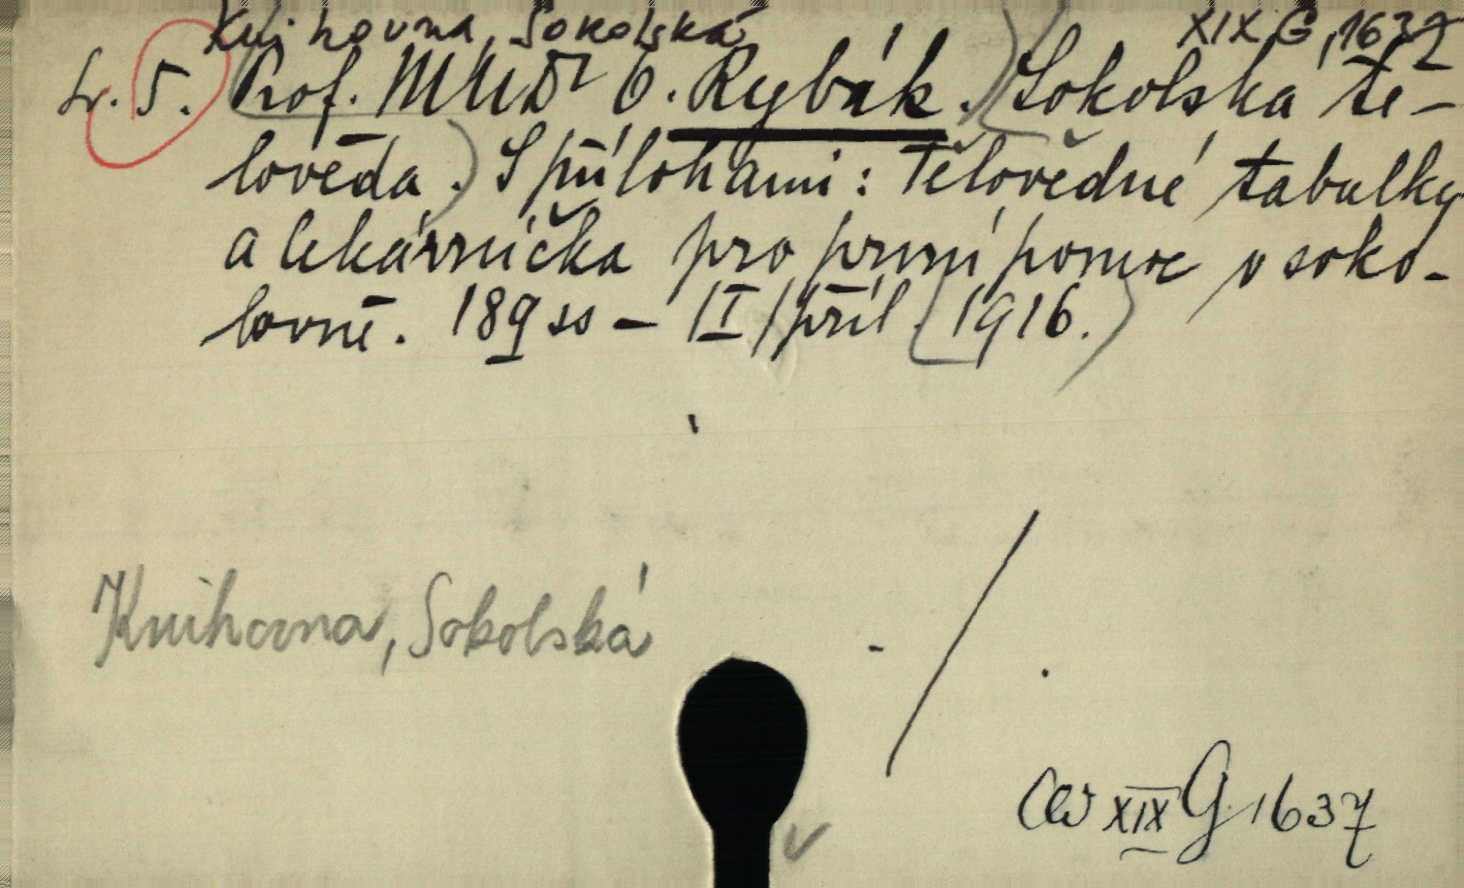 Knihovna, Sokolská XIX G, 1637
Sv. 5. Prof. MUDr O. Rybák. Sokolská tě-
lověda. S přílohami: Tělovědné tabulky
a lékárnička pro první pomoc v soko-
lovně. 189 ss – /II/ příl. 1916.
Knihovna, Sokolská
XIX G 1637